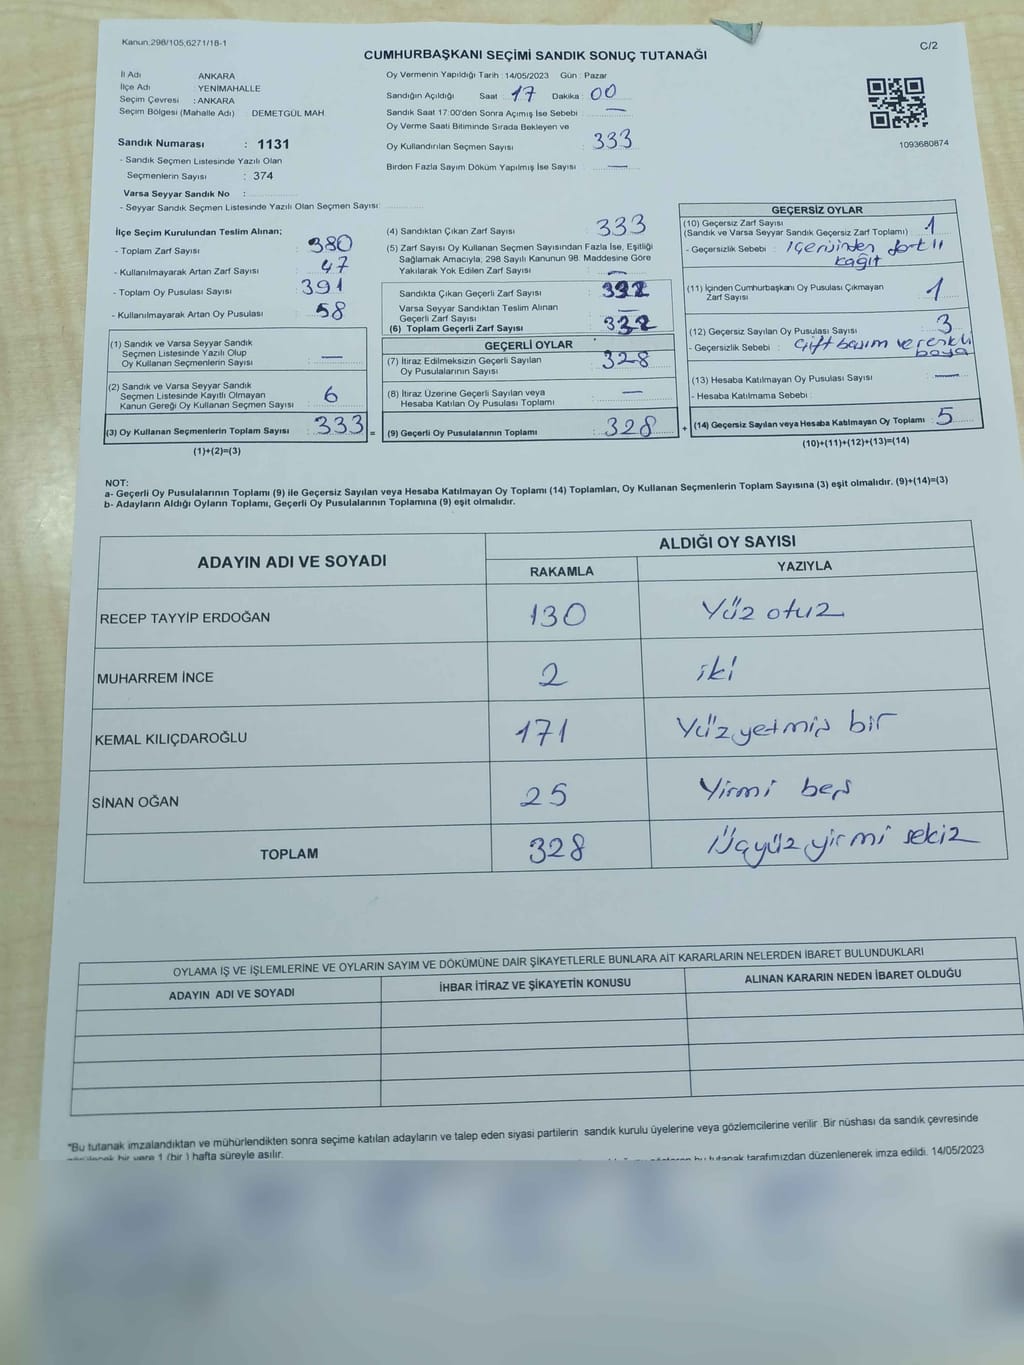 Kanun;298/105,6271/18-1
C/2
CUMHURBAŞKANI SEÇİMİ SANDIK SONUÇ TUTANAĞI
İl Adı ANKARA
İlçe Adı YENİMAHALLE
Seçim Çevresi : ANKARA
Seçim Bölgesi (Mahalle Adı) DEMETGÜL MAH
Sandık Numarası : 1131
- Sandık Seçmen Listesinde Yazılı Olan
Seçmenlerin Sayısı : 374
Varsa Seyyar Sandık No :
- Seyyar Sandık Seçmen Listesinde Yazılı Olan Seçmen Sayısı:
Oy Vermenin Yapıldığı Tarih : 14/05/2023 Gün : Pazar
Sandığın Açıldığı Saat 17 Dakika : 00
Sandık Saat 17:00'den Sonra Açımış İse Sebebi : —
Oy Verme Saati Bitiminde Sırada Bekleyen ve
Oy Kullandırılan Seçmen Sayısı : 333
Birden Fazla Sayım Döküm Yapılmış İse Sayısı : —
1093680874
İlçe Seçim Kurulundan Teslim Alınan;
- Toplam Zarf Sayısı : 380
- Kullanılmayarak Artan Zarf Sayısı : 47
- Toplam Oy Pusulası Sayısı : 391
- Kullanılmayarak Artan Oy Pusulası : 58
(1) Sandık ve Varsa Seyyar Sandık
Seçmen Listesinde Yazılı Olup
Oy Kullanan Seçmenlerin Sayısı —
(2) Sandık ve Varsa Seyyar Sandık
Seçmen Listesinde Kayıtlı Olmayan
Kanun Gereği Oy Kullanan Seçmen Sayısı : 6
(3) Oy Kullanan Seçmenlerin Toplam Sayısı : 333 =
(1)+(2)=(3)
(4) Sandıktan Çıkan Zarf Sayısı : 333
(5) Zarf Sayısı Oy Kullanan Seçmen Sayısından Fazla İse, Eşitliği
Sağlamak Amacıyla, 298 Sayılı Kanunun 98. Maddesine Göre
Yakılarak Yok Edilen Zarf Sayısı : —
Sandıkta Çıkan Geçerli Zarf Sayısı : 332
Varsa Seyyar Sandıktan Teslim Alınan
Geçerli Zarf Sayısı : —
(6) Toplam Geçerli Zarf Sayısı : 332
GEÇERLİ OYLAR
(7) İtiraz Edilmeksizin Geçerli Sayılan
Oy Pusulalarının Sayısı : 328
(8) İtiraz Üzerine Geçerli Sayılan veya
Hesaba Katılan Oy Pusulası Toplamı : —
(9) Geçerli Oy Pusulalarının Toplamı : 328 +
GEÇERSİZ OYLAR
(10) Geçersiz Zarf Sayısı
(Sandık ve Varsa Seyyar Sandık Geçersiz Zarf Toplamı) : 1
- Geçersizlik Sebebi : İçerisinden dört lü
kağıt
(11) İçinden Cumhurbaşkanı Oy Pusulası Çıkmayan
Zarf Sayısı : 1
(12) Geçersiz Sayılan Oy Pusulası Sayısı : 3
- Geçersizlik Sebebi : Çift basım ve renkli
boya
(13) Hesaba Katılmayan Oy Pusulası Sayısı : —
- Hesaba Katılmama Sebebi
(14) Geçersiz Sayılan veya Hesaba Katılmayan Oy Toplamı : 5
(10)+(11)+(12)+(13)=(14)
NOT:
a- Geçerli Oy Pusulalarının Toplamı (9) ile Geçersiz Sayılan veya Hesaba Katılmayan Oy Toplamı (14) Toplamları, Oy Kullanan Seçmenlerin Toplam Sayısına (3) eşit olmalıdır. (9)+(14)=(3)
b- Adayların Aldığı Oyların Toplamı, Geçerli Oy Pusulalarının Toplamına (9) eşit olmalıdır.
ADAYIN ADI VE SOYADI ALDIĞI OY SAYISI
RAKAMLA YAZIYLA
RECEP TAYYİP ERDOĞAN 130 Yüz otuz
MUHARREM İNCE 2 iki
KEMAL KILIÇDAROĞLU 171 Yüz yetmiş bir
SİNAN OĞAN 25 Yirmi beş
TOPLAM 328 Üçyüz yirmi sekiz
OYLAMA İŞ VE İŞLEMLERİNE VE OYLARIN SAYIM VE DÖKÜMÜNE DAİR ŞİKAYETLERLE BUNLARA AİT KARARLARIN NELERDEN İBARET BULUNDUKLARI
ADAYIN ADI VE SOYADI İHBAR İTİRAZ VE ŞİKAYETİN KONUSU ALINAN KARARIN NEDEN İBARET OLDUĞU
"Bu tutanak imzalandıktan ve mühürlendikten sonra seçime katılan adayların ve talep eden siyasi partilerin sandık kurulu üyelerine veya gözlemcilerine verilir. Bir nüshası da sandık çevresinde
bir yere 1 (bir) hafta süreyle asılır.
bu tutanak tarafımızdan düzenlenerek imza edildi. 14/05/2023